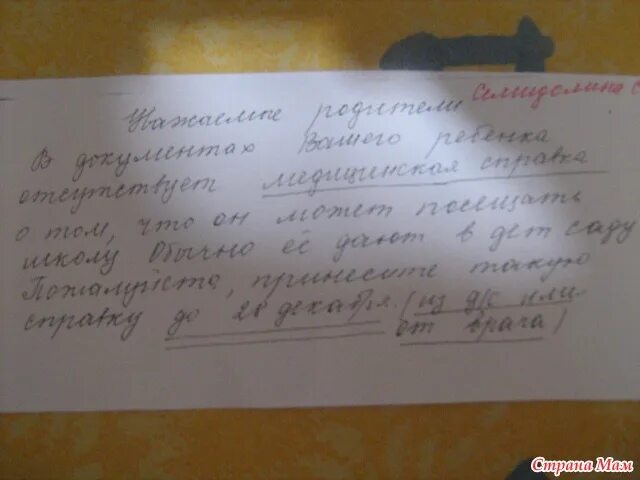 Уважаемые родители
В документах Вашего ребенка
отсутствует медицинская справка
о том, что он может посещать
школу Обычно её дают в дет саду
Пожалуйста, принесите такую
справку до 28 декабря. (из д/с или
от врача)
Страна Мам